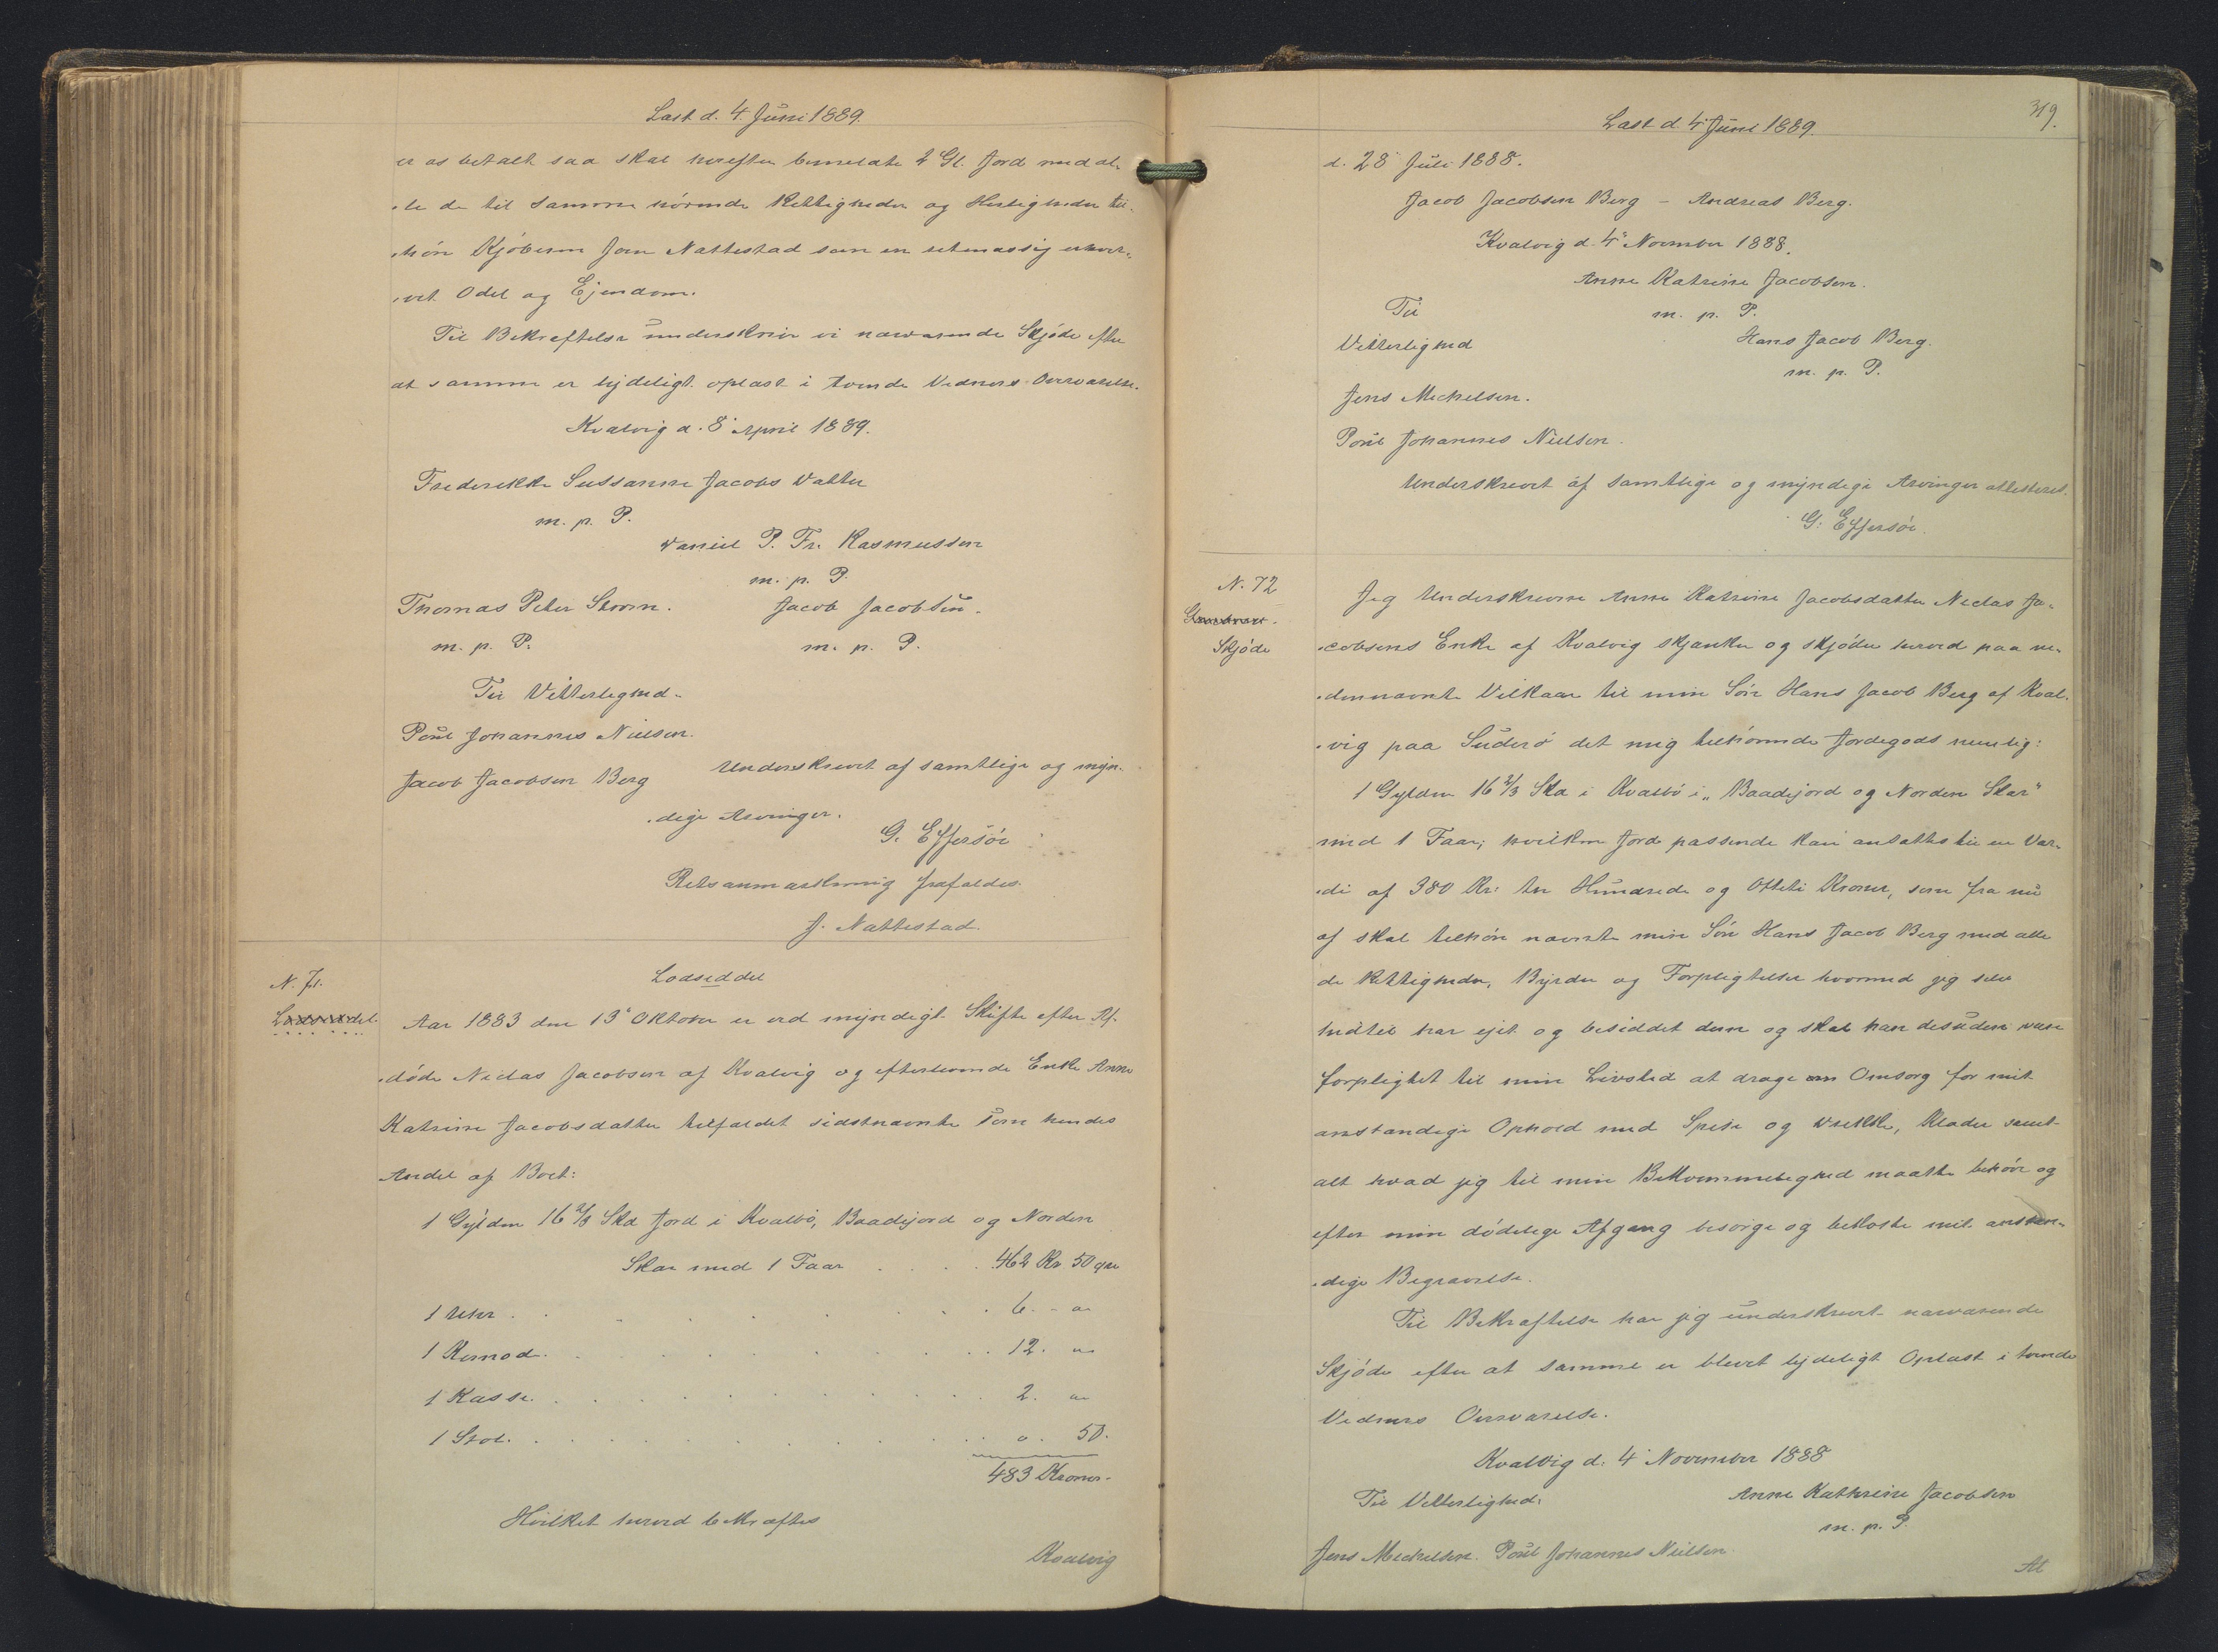 Læst d. 4 Juni 1889.
er os betalt saa skal herefter bemeldte 2 Gl. Jord med al-
le de til samme hörende Rettigheder og Herligheder til-
höre Kjöberen Joen Nattestad som en retmæssig erhver-
vet Odel og Ejendom.
Til Bekræftelse underskrive vi nærværende Skjöde efter
at samme er lydeligt oplæst i tvende Vidners Overværelse.
Kvalvig d. 8 April 1889.
Frederikke Sussanne Jacobs Datter
m. p. P.
Daniel P. Fr. Rasmussen
m. p. P.
Thomas Peter Storm. Jacob Jacobsen.
m. p. P. m. p. P.
Til Vitterlighed.
Poul Johannes Nielsen.
Jacob Jacobsen Berg Underskrevet af samtlige og myn-
dige Arvinger.
G. Effersöe
Retsanmærkning frafaldes.
J. Nattestad.
N. 71. Lodseddel
Lodseddel.
Aar 1883 den 13 Oktober er ved myndigt Skifte efter Af-
döde Niclas Jacobsen af Kvalvig og efterlevende Enke Anne
Katrine Jacobsdatter tilfaldet sidstnævnte som hendes
Andel af Boet:
1 Gylden 16 2/3 Skd Jord i Kvalbö, Baadejord og Norden
Skar med 1 Faar . . . . 462 Kr 50 øre
1 Uhr . . . . . . . 6. - "
1 Komod. . . . . . . 12. "
1 Kasse. . . . . . . 2. "
1 Stol. . . . . . . 0. 50.
483 Kroner.
Hvilket herved bekræftes
Kvalvig
319.
Læst d. 4 Juni 1889.
d. 28 Juli 1888.
Jacob Jacobsen Berg - Andreas Berg.
Kvalvig d. 4 November 1888.
Anne Katrine Jacobsen.
Til m. p. P.
Vitterlighed Hans Jacob Berg.
m. p. P.
Jens Michelsen.
Poul Johannes Nielsen.
Underskrevet af samtlige og myndige Arvinger attesteret.
G. Effersöe.
N. 72
Skjöde
Jeg Underskrevne Anne Katrine Jacobsdatter Niclas Ja-
cobsens Enke af Kvalvig skjænker og skjöder herved paa ne-
dennævnte Vilkaar til min Sön Hans Jacob Berg af Kval-
vig paa Suderö det mig tilhörende Jordegods nemlig:
1 Gylden 16 2/3 Skd i Kvalbö i „Baadejord og Norden Skar"
med 1 Faar; hvilken Jord passende kan ansættes til en Vær-
di af 380 Kr: tre Hundrede og Otteti Kroner, som fra nu
af skal tilhöre nævnte min Sön Hans Jacob Berg med alle
de Rettigheder, Byrder og Forpligtelser hvormed jeg selv
indtil har ejet og besiddet den og skal han desuden være
forpligtet til min Livstid at drage om Omsorg for mit
anstændige Ophold med Spise og Drikke, Klæder samt
alt hvad jeg til min Bekvemmelighed maatte behöve og
efter min dödelige Afgang besörge og bekoste mit anstæn-
dige Begravelse.
Til Bekræftelse har jeg underskrevet nærværende
Skjöde efter at samme er blevet lydeligt Oplæst i tvende
Vidners Overværelse.
Kvalvig d. 4 November 1888
Til Vitterlighed: Anne Kathrine Jacobsen
m. p. P.
Jens Michelsen. Poul Johannes Nielsen.
At